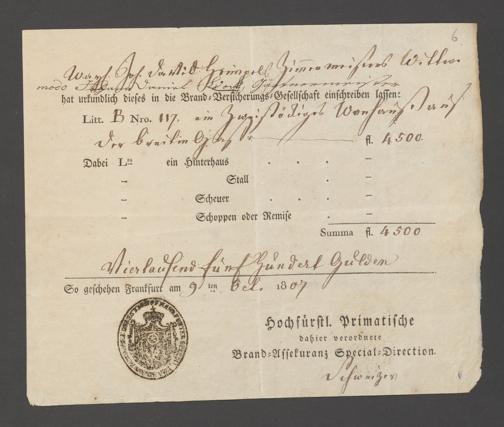 6
Wayl. Joh. David Heimpels Zimmermeisters Wittwe
modo Johann Daniel
hat urkundlich dieses in die Brand-Versicherungs-Gesellschaft einschreiben lassen:
Litt. B Nro. 117. ein Zweystöckiges Wonhauß auf
der breiten Gaß — fl. 4500
Dabei Lra ein Hinterhaus . . . –
– Stall . . –
– Scheuer . . . –
– Schoppen oder Remise . –
Summa fl. 4500
Viertausend fünf Hundert Gulden
So geschehen Frankfurt am 9ten Oct. 1807
Hochfürstl. Primatische
dahier verordnete
Brand-Assekuranz Special-Direction.
Schweizer